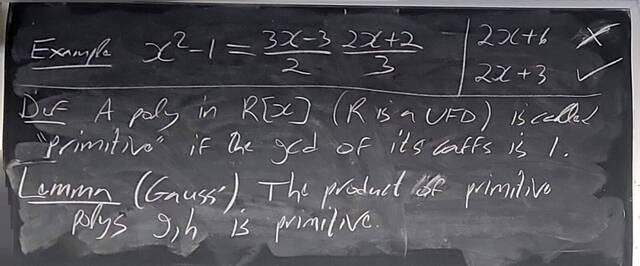 Example x²-1 = (3x-3)/2 (2x+2)/3 | 2x+6 ✗
2x+3 ✓
Def A poly in R[x] (R is a UFD) is called
"primitive" if the gcd of its coeffs is 1.
Lemma (Gauss') The product of primitive
polys g,h is primitive.